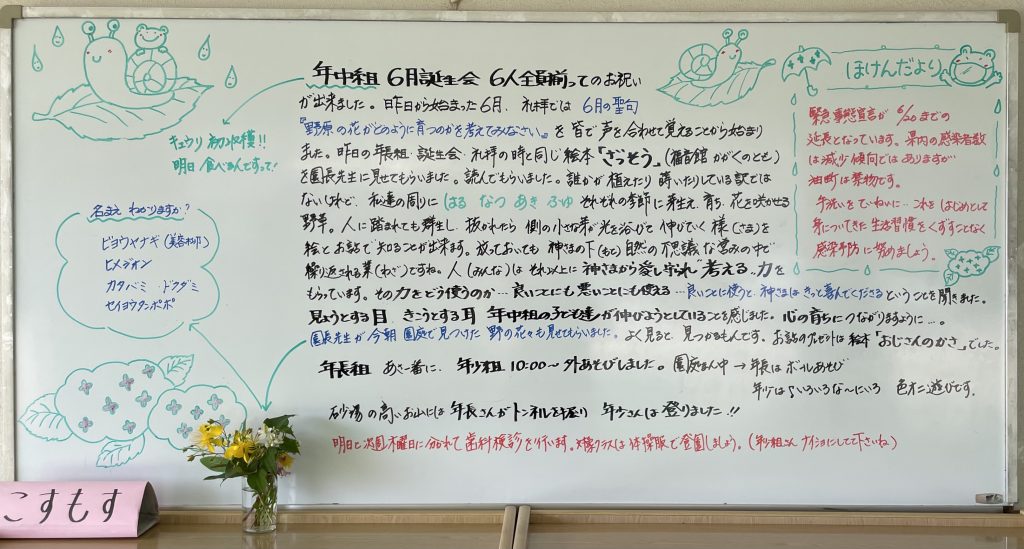 年中組 6月誕生会 6人全員揃ってのお祝い
が出来ました。昨日から始まった6月、礼拝では 6月の聖句
『野原の花がどのように育つのかを考えてみなさい。』を皆で声を合わせて覚えることから始まり
ました。昨日の年長組・誕生会・礼拝の時と同じ絵本「ざっそう」(福音館 かがくのとも)
を園長先生に見せてもらいました。読んでもらいました。誰かが植えたり蒔いたりしている訳では
ないけれど、私達の周りに はる なつ あき ふゆ それぞれの季節に芽生え、育ち、花を咲かせる
野草。人に踏まれても群生し、抜かれたら 側の小さな芽が光を浴びて伸びていく様(さま)を
絵とお話で知ることが出来ます。放っておいても 神さまの下(もと)自然の不思議な営みの中で
繰り返される業(わざ)ですね。人(みんな)は それ以上に神さまから愛し守られ“考える”力を
もらっています。その力をどう使うのか…良いことにも悪いことにも使える…良いことに使うと、神さまは きっと喜んでくださる ということを聞きました。
見ようとする目 きこうとする耳 年中組の子ども達が伸びようとしていることを感じました。心の育ちにつながりますように…。
園長先生が今朝 園庭で見つけた 野の花々も見せてもらいました。よく見ると、見つかるもんです。お話のプレゼントは 絵本「おじさんのかさ」でした。
年長組 あさ一番に、年少組 10:00〜 外あそびしました。園庭まん中→年長は ボールあそび
年少は いろいろな〜にいろ 色オニ遊びです。
砂場の高いお山には 年長さんがトンネルを掘り 年少さんは登りました!!
明日と次週木曜日に分かれて歯科検診を行います。クラスは体操服で登園しましょう。(年少組さん ナイショにしてて下さいね)
キュウリ 初収穫!!
明日 食べるんですって!
名まえ わかりますか?
ビヨウヤナギ(美容柳)
ヒメジオン
カタバミ ドクダミ
セイヨウタンポポ
ほけんだより
緊急事態宣言が 6/20までの
延長となっています。県内の感染者数
は減少傾向ではありますが
油断は禁物です。
手洗いをていねいに…これを はじめとして
身についてきた生活習慣をくずすことなく
感染予防に努めましょう。
こすもす